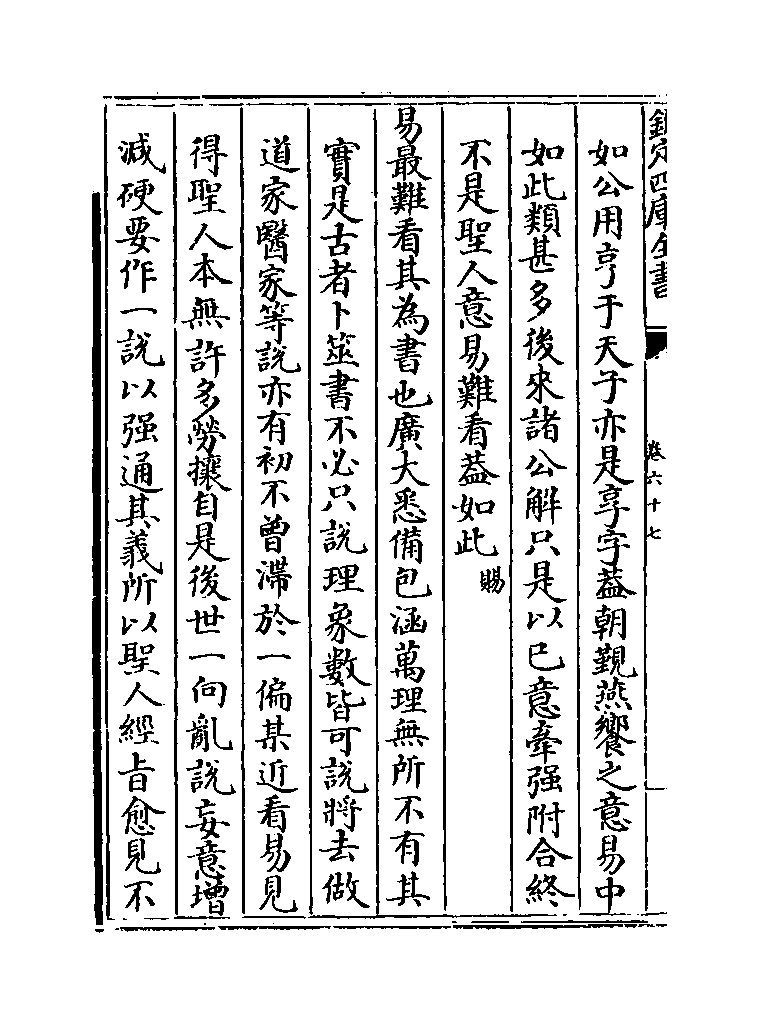 欽定四庫全書
卷六十七
如公用亨于天子亦是享字葢朝覲燕饗之意易中
如此類甚多後來諸公解只是以已意牽强附合終
不是聖人意易難看葢如此賜
易最難看其為書也廣大悉備包涵萬理無所不有其
實是古者卜筮書不必只説理象數皆可説將去做
道家醫家等説亦有初不曾滯於一偏某近看易見
得聖人本無許多勞攘自是後世一向亂説妄意增
減硬要作一説以强通其義所以聖人經旨愈見不